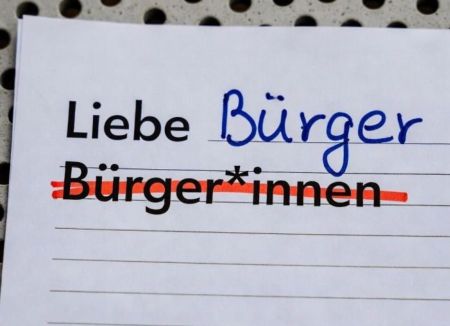 Liebe Bürger
Bürger*innen